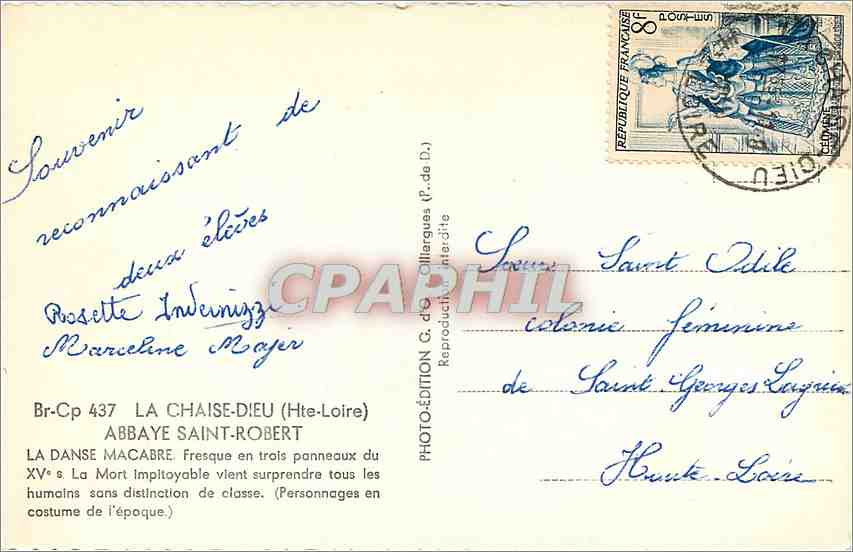 Souvenir
reconnaissant de
deux élèves
Rosette Invernizzi
Marceline Majer
Br-Cp 437 LA CHAISE-DIEU (Hte-Loire)
ABBAYE SAINT-ROBERT
LA DANSE MACABRE. Fresque en trois panneaux du
XVe s. La Mort impitoyable vient surprendre tous les
humains sans distinction de classe. (Personnages en
costume de l'époque.)
PHOTO-ÉDITION G. d'O. Olliergues (P. de D.)
Reproduction interdite
CPAPHIL
RÉPUBLIQUE FRANÇAISE
8f
POSTES
CHAISE-DIEU
LOIRE
Soeur Saint Odile
colonie féminine
de Saint Georges
Haute-Loire